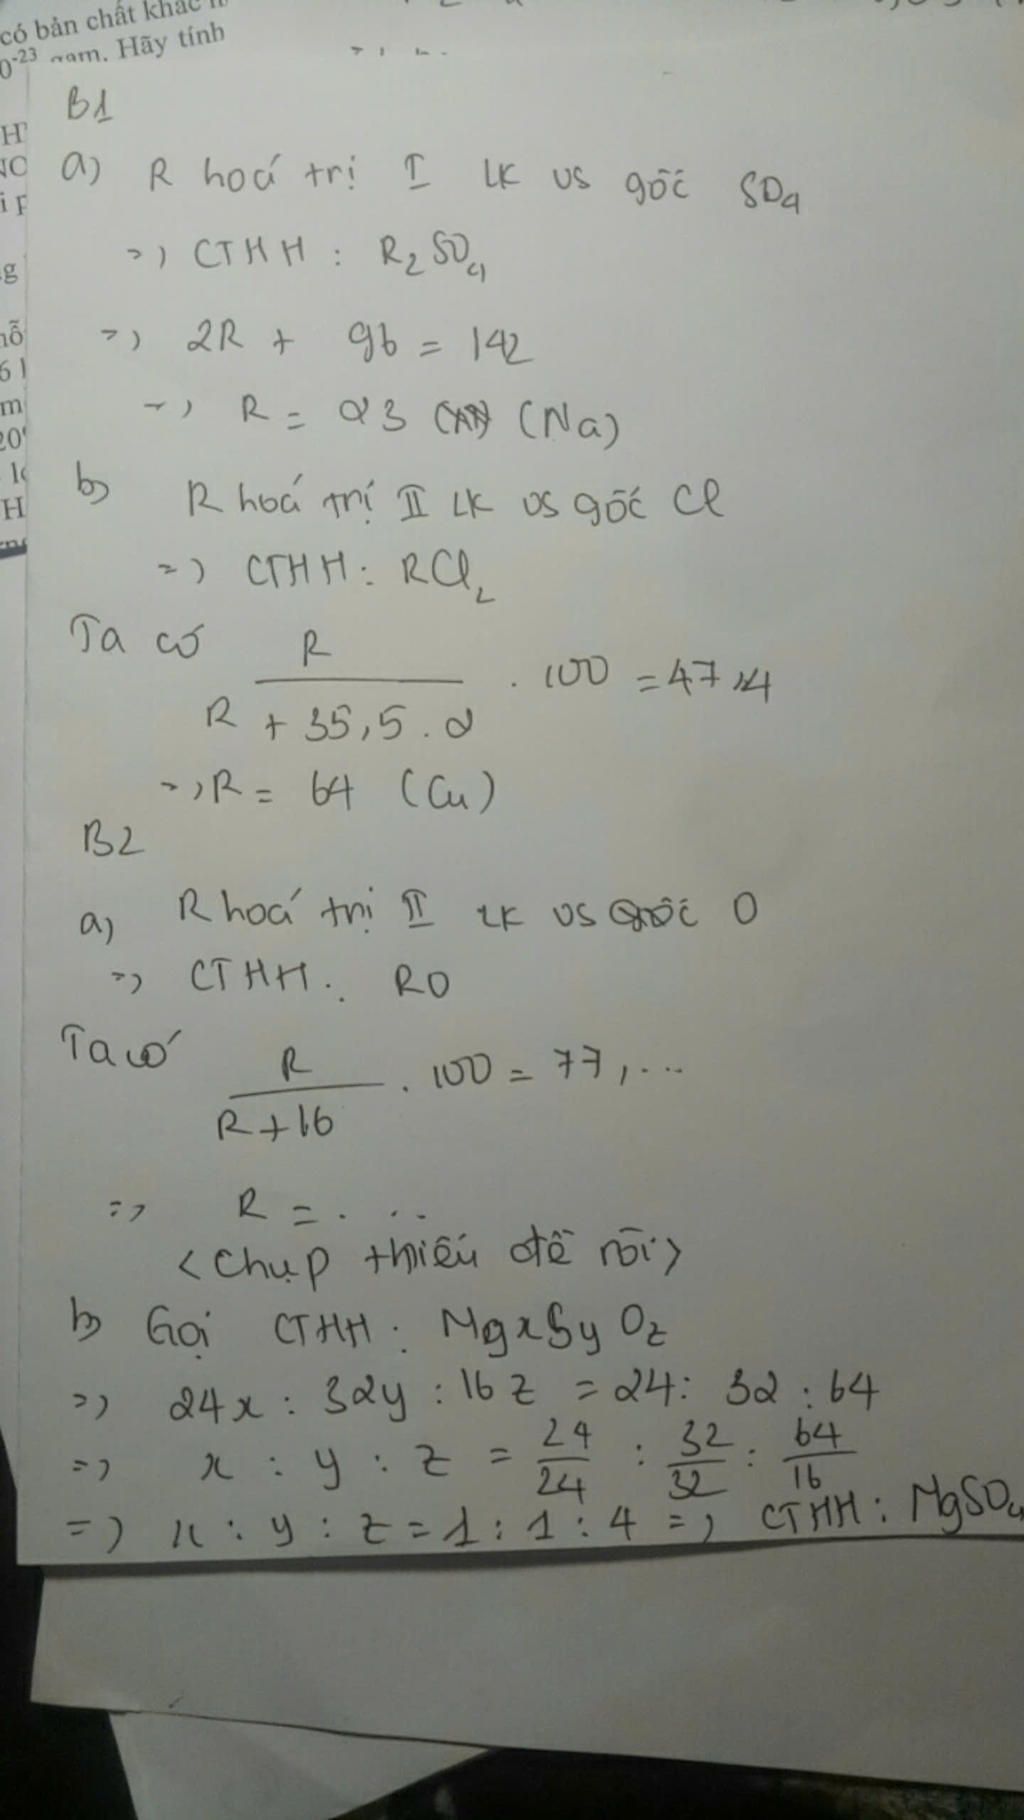 có bản chất khác
0-23 gam. Hãy tính
B1
a) R hoá trị I LK vs gốc SO4
=> CTHH : R2SO4
=> 2R + 96 = 142
=> R = 23 (Na)
b) R hoá trị II LK vs gốc Cl
=> CTHH : RCl2
Ta có R / R + 35,5 . 2 . 100 = 47,4
=> R = 64 (Cu)
B2
a) R hoá trị II LK vs gốc O
=> CTHH : RO
Ta có R / R + 16 . 100 = 77,...
=> R = ...
<Chụp thiếu đề rồi>
b) Gọi CTHH : MgxSyOz
=> 24x : 32y : 16z = 24 : 32 : 64
=> x : y : z = 24/24 : 32/32 : 64/16
=> x : y : z = 1 : 1 : 4 => CTHH : MgSO4